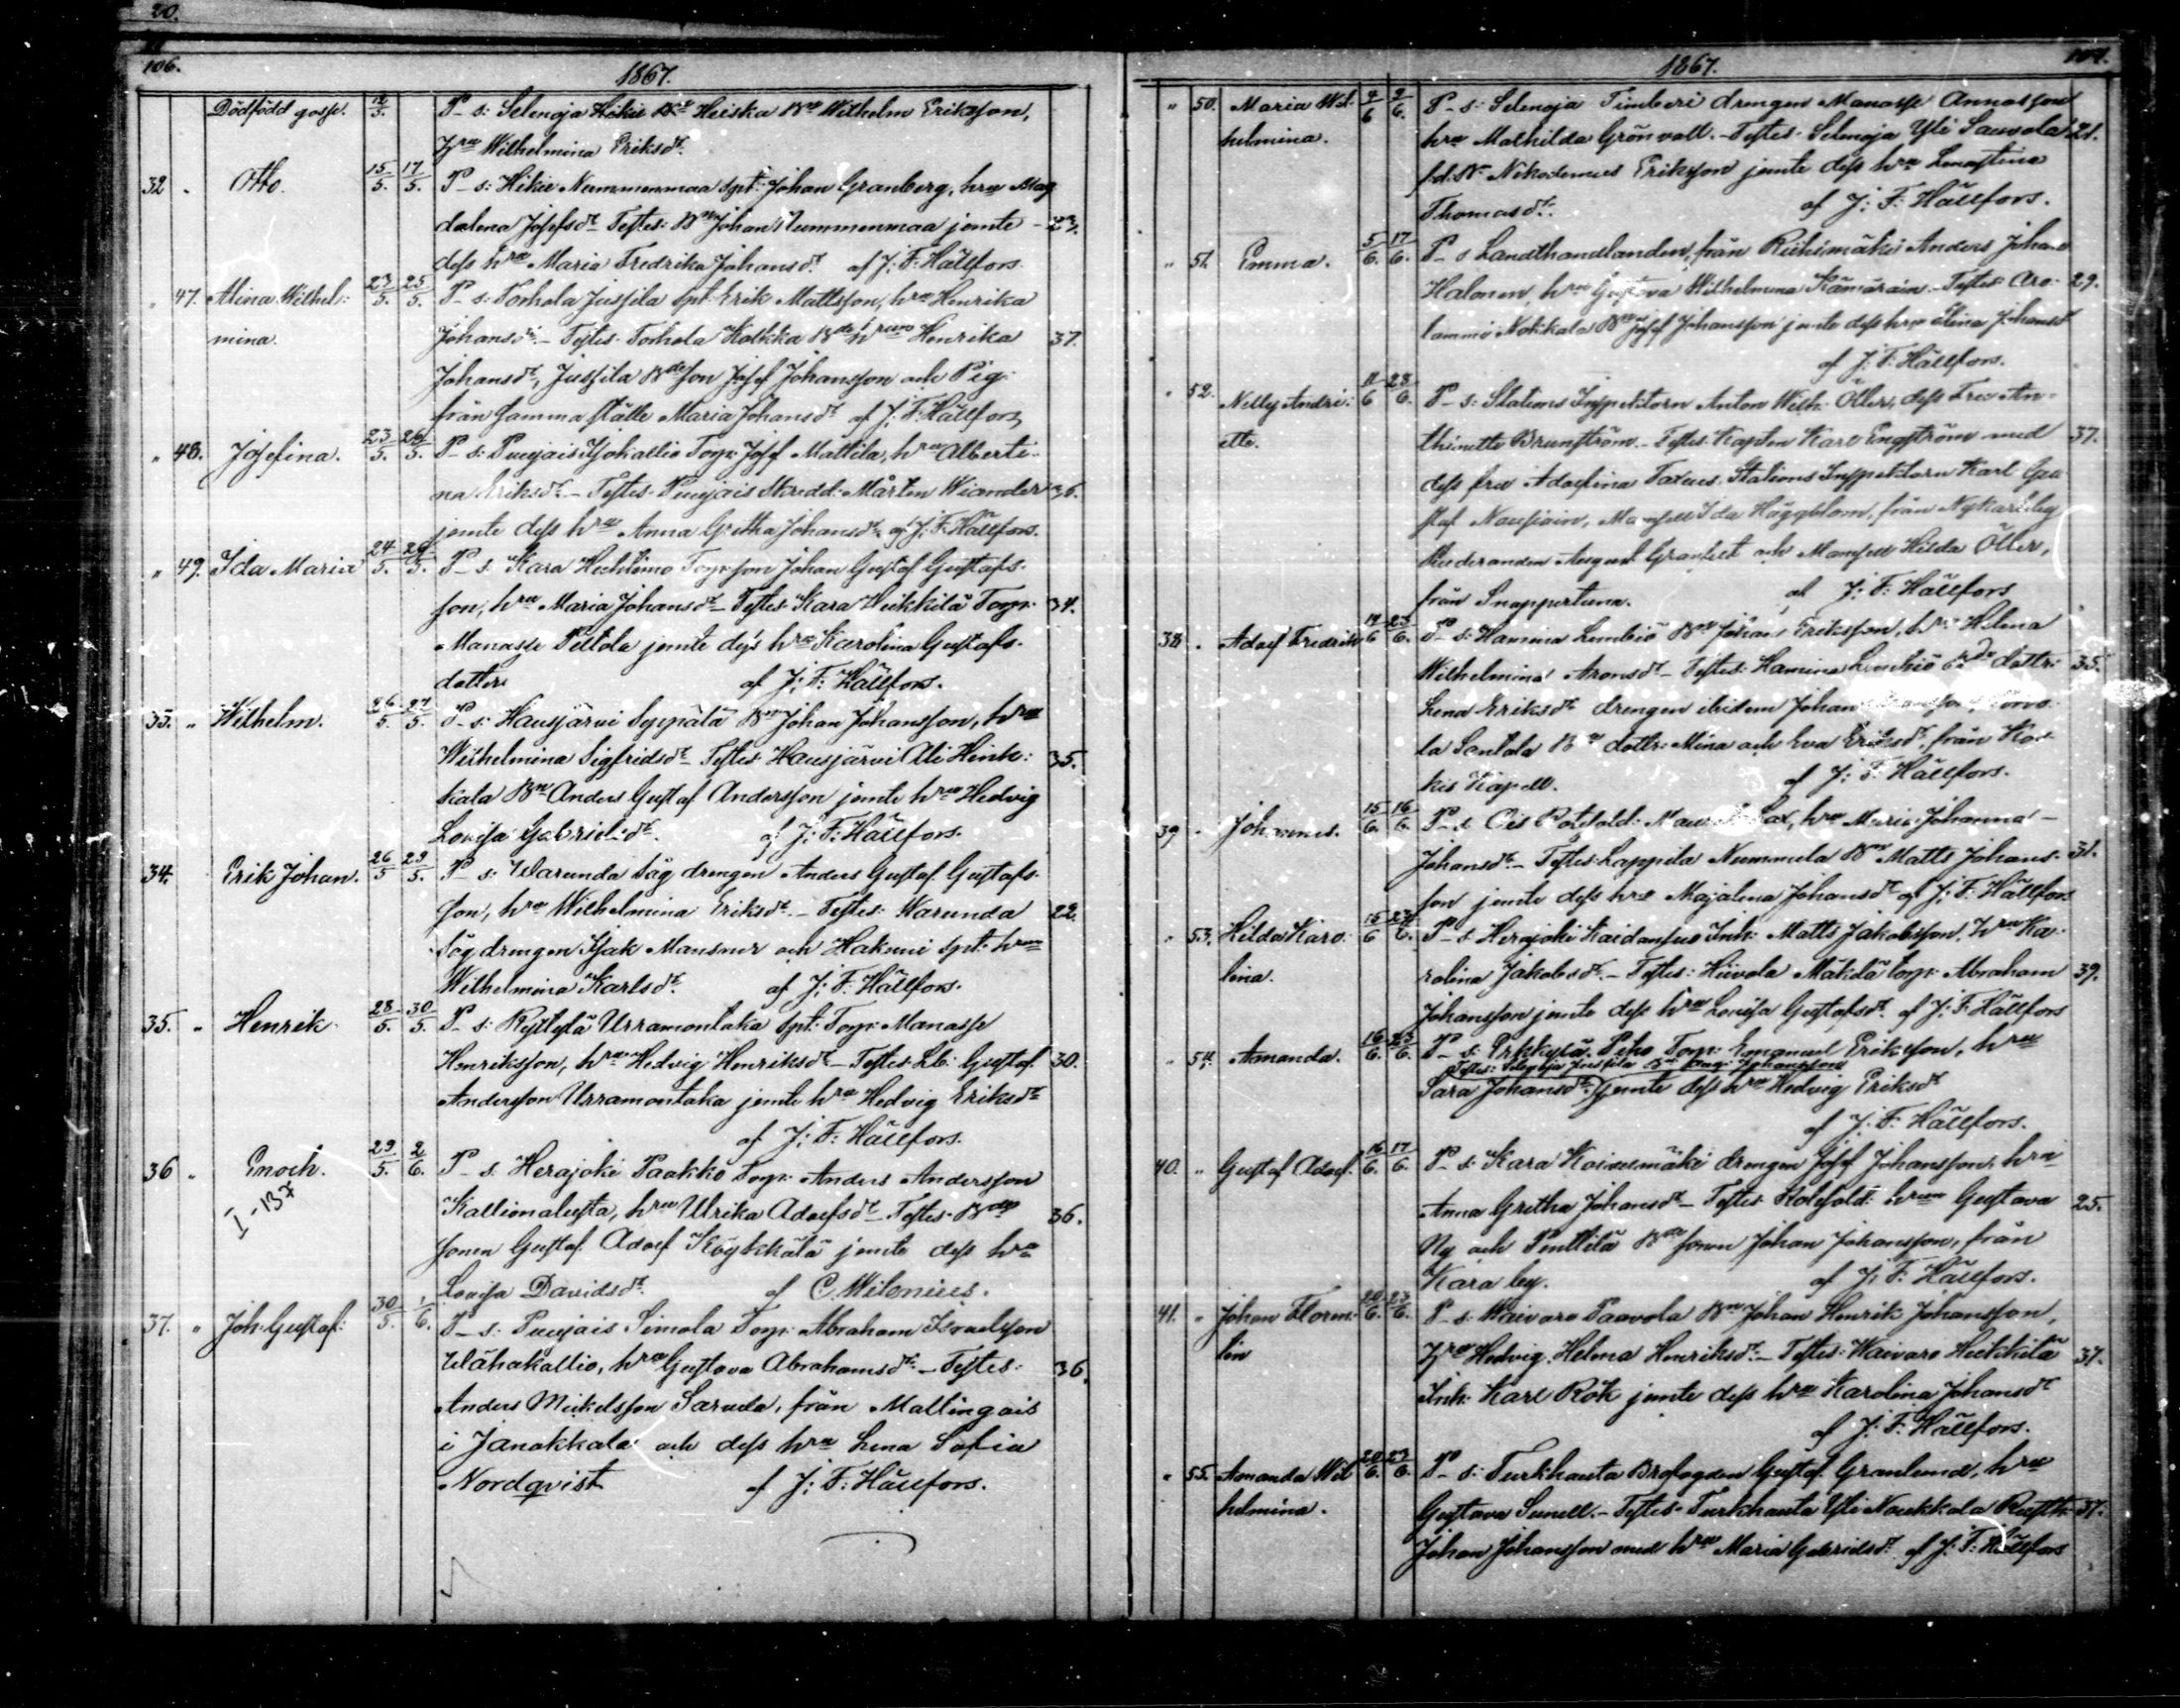 20.
106.
1867.
Dödfödd gosse. 12/5. P_ s: Selenoja Hikie Heiska Bn Wilhelm Eriksson,
Hru Wilhelmina Eriksdr.
32 " Otto. 15/5. 17/5. P_ s: Hikie Nummenmaa spt: Johan Granberg, hru Mag
dalena Josefsdr Testes: Bn Johan Nummenmaa jemte 27.
dess hru Maria Fredrika Johansdr. af J: F: Hällfors
" 47. Alina Wilhel: 23/5. 25/5. P_ s: Torhola Jussila spt: Erik Mattsson, hru Henrika
mina. Johansdr. _ Testes. Torhola Kolkka Bde hrun Henrika 37.
Johansdr, Jussila Bdeson Josef Johansson och Pig.
från samma ställe Maria Johansdr af J: F: Hällfors
" 48. Josefina. 23/5. 26/5. P_ s: Puujais Isokallio Torp: Josef Mattila, hru Alberti-
na Eriksdr. _ Testes. Puujais Skredd. Mårten Wiander 36.
jemte dess hru Anna Gretha Johansdr af J: F: Hällfors.
" 49. Ida Maria 24/5. 26/5. P_ s: Kara Torp:son Johan Gustaf Gustafs-
son, hru Maria Johansdr _ Testes Kara Heikkilä Torp: 34.
Manasse Peltola jemte dess hru Karolina Gustafs-
dotter af J: F: Hällfors.
33. " Wilhelm. 26/5. 27/5. P_ s: Hausjärvi Seppälä Bn Johan Johansson, hru
Wilhelmina Sigfridsdr _ Testes Hausjärvi Ali Hink: 35.
kala Bn Anders Gustaf Andersson jemte hru Hedvig
Lovisa Gabrielsdr. af J: F: Hällfors.
34. Erik Johan. 26/5 29/5. P_ s: Warunda Såg drengen Anders Gustaf Gustafs-
son, hru Wilhelmina Eriksdr. _ Testes: Warunda 22.
Såg drengen Isak Mansner och Hakuni spt: hrun
Wilhelmina Karlsdr. af J: F: Hällfors.
35. " Henrik 28/5. 30/5. P_ s: Ryttylä Urramontaka Spt: Torp: Manasse
Henriksson, hru Hedvig Henriksdr _ Testes. Gustaf 30.
Andersson Urramontaka jemte hru Hedvig Eriksdr
af J: F: Hällfors.
36 " Enoch. 29/5. 2/6. P_ s. Herajoki Paakko Torp: Anders Andersson
I-137 Kallionalusta, hru Ulrika Adolfsdr _ Testes. Bde 36.
sonen Gustaf Adolf Köykkälä jemte dess hru
Lovisa Davidsdr. af C. Milonius.
37. " Joh: Gustaf. 30/5. 1/6. P_ s: Puujais Simola Torp: Abraham Israelsson
Wähäkallio, hru Gustava Abrahamsdr. _ Testes: 36.
Anders Mickelsson Sarvela, från Mallingais
i Janakkala och dess hru Lena Sofia
Nordqvist af J: F: Hällfors.
1867.
107.
" 50. Maria Wil- 4/6 9/6. P_ s: Selenoja Timberi drengen Manasse Annasson
helmina. hru Mathilda Grönvall. _ Testes. Selenoja Yli Sauvola 21.
f.d. Bn Nikodemus Eriksson jemte dess hru Lenastina
Thomasdr. af J: F: Hällfors.
" 51. Emma. 5/6. 17/6. P_ s Landthandlanden, från Riihimäki Anders Johan
Halonen, hru Gustava Wilhelmina Kämäräin. Testes Aro- 29.
lammi Nokkala Bn Josef Johansson jemte dess hru Stina Johansdr
af J: F: Hällfors.
" 52. Nelly Andri- 11/6 23/6. P_ s: Stations Inspektorn Anton Wilh. Öller, dess Fru An-
ette. thinette Brunström. _ Testes. Kapten Karl Engström med 37.
dess fru Adolfina Taxues. Stations Inspektorn Karl Gu
staf Nousiain, Mamsell Ida Häggblom, från Nykarleby
Studeranden August Granfelt och Mamsell Hilda Öller,
från Snappertuna. af J: F: Hällfors
38 " Adolf Fredrik 14/6 23/6. P_ s: Hamina Lembiö Bn Johan Eriksson, hru Helena
Wilhelmina Aronsdr _ Testes: Hamina Lembiö dottr: 35.
Lena Eriksdr drengen ibidem Johan
la Santala Bn dottr: Mina och Eva Eriksdr, från Kos-
kis Kapell. af J: F: Hällfors.
39 " Johannes. 15/6. 16/6. P_ s Ois Potifold. hru Maria Johanna
Johansdr. _ Testes: Lappila Nummela Bn Matts Johans- 31.
son jemte dess hru Majalena Johansdr af J: F: Hällfors
" 53. Hilda Karo- 15/6 24/6. P_ s. Herajoki Inh: Matts Jakobsson, hru Ka-
lina. rolina Jakobsdr. _ Testes: Hiivola Mäkelä torp: Abraham 39.
Johansson jemte dess hru Lovisa Gustafsdr. af J: F: Hällfors
" 54. Amanda. 16/6. 23/6. P_ s: Erkkylä Torp: Emanuel Eriksson, hru
Testes: Selenoja Jussila Johansson
Sara Johansdr. jemte dess hru Hedvig Eriksdr
af J: F: Hällfors.
40. " Gustaf Adolf. 16/6. 17/6. P_ s: Kara Koivusmäki drengen Josef Johansson, hru
Anna Gretha Johansdr _ Testes hrun Gustava 25.
Ny och Penttilä Bdesonen Johan Johansson, från
Kara by. af J: F: Hällfors.
41. " Johan Floren- 20/6. 23/6. P_ s. Waivaro Paavola Bn Johan Henrik Johansson,
tin Hru Hedvig Helena Henriksdr. _ Testes: Waivaro Heikkilä 37.
Inh: Karl Rök jemte dess hru Karolina Johansdr
af J: F: Hällfors.
" 55. Amanda Wil 20/6. 23/6. P_ s: Turkhauta Brofogden Gustaf Granlund, hru
helmina. Gustava Sunell. _ Testes. Turkhauta Yli Naukkala Rusth. 37.
Johan Johansson med hru Maria af J: F: Hällfors